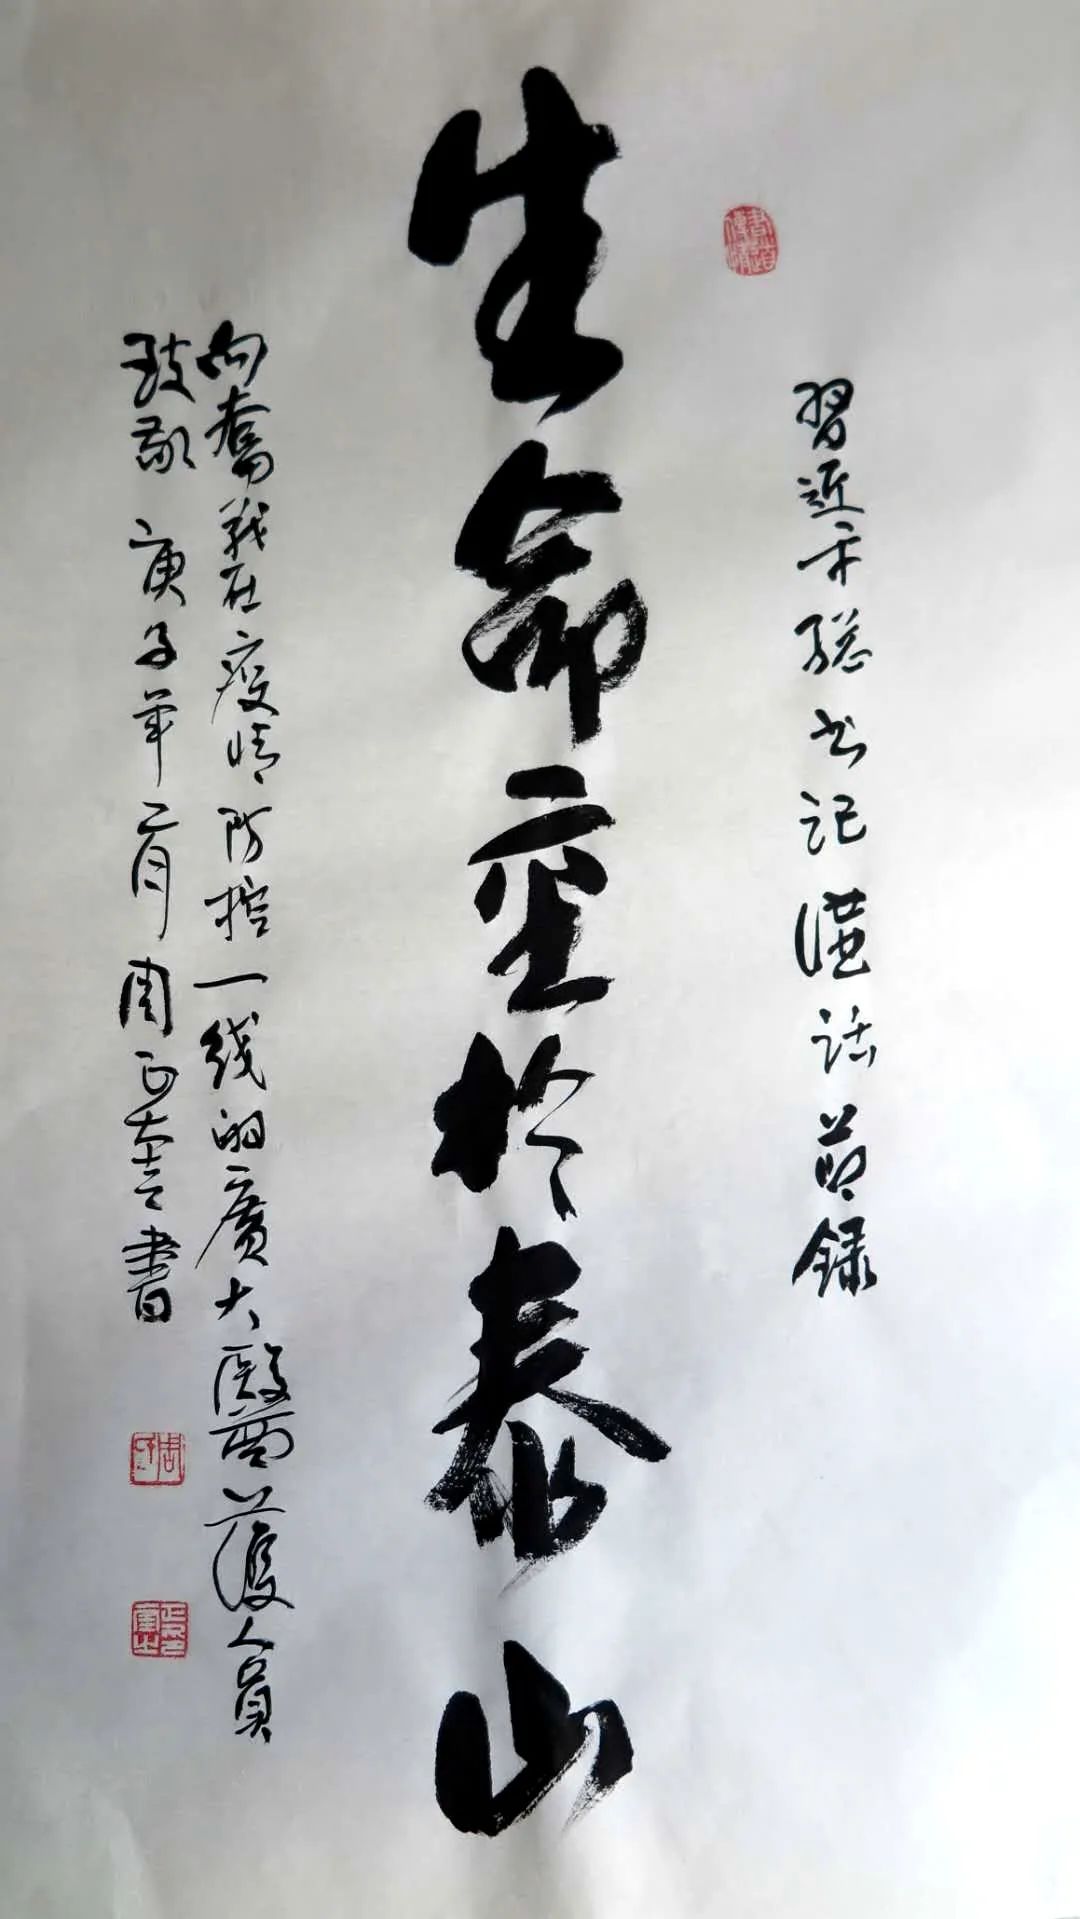 習近平總书记講话节録
生命重於泰山
向奮戰在疫情防控一线的廣大醫護人員
致敬 庚子年二月 周正奎書